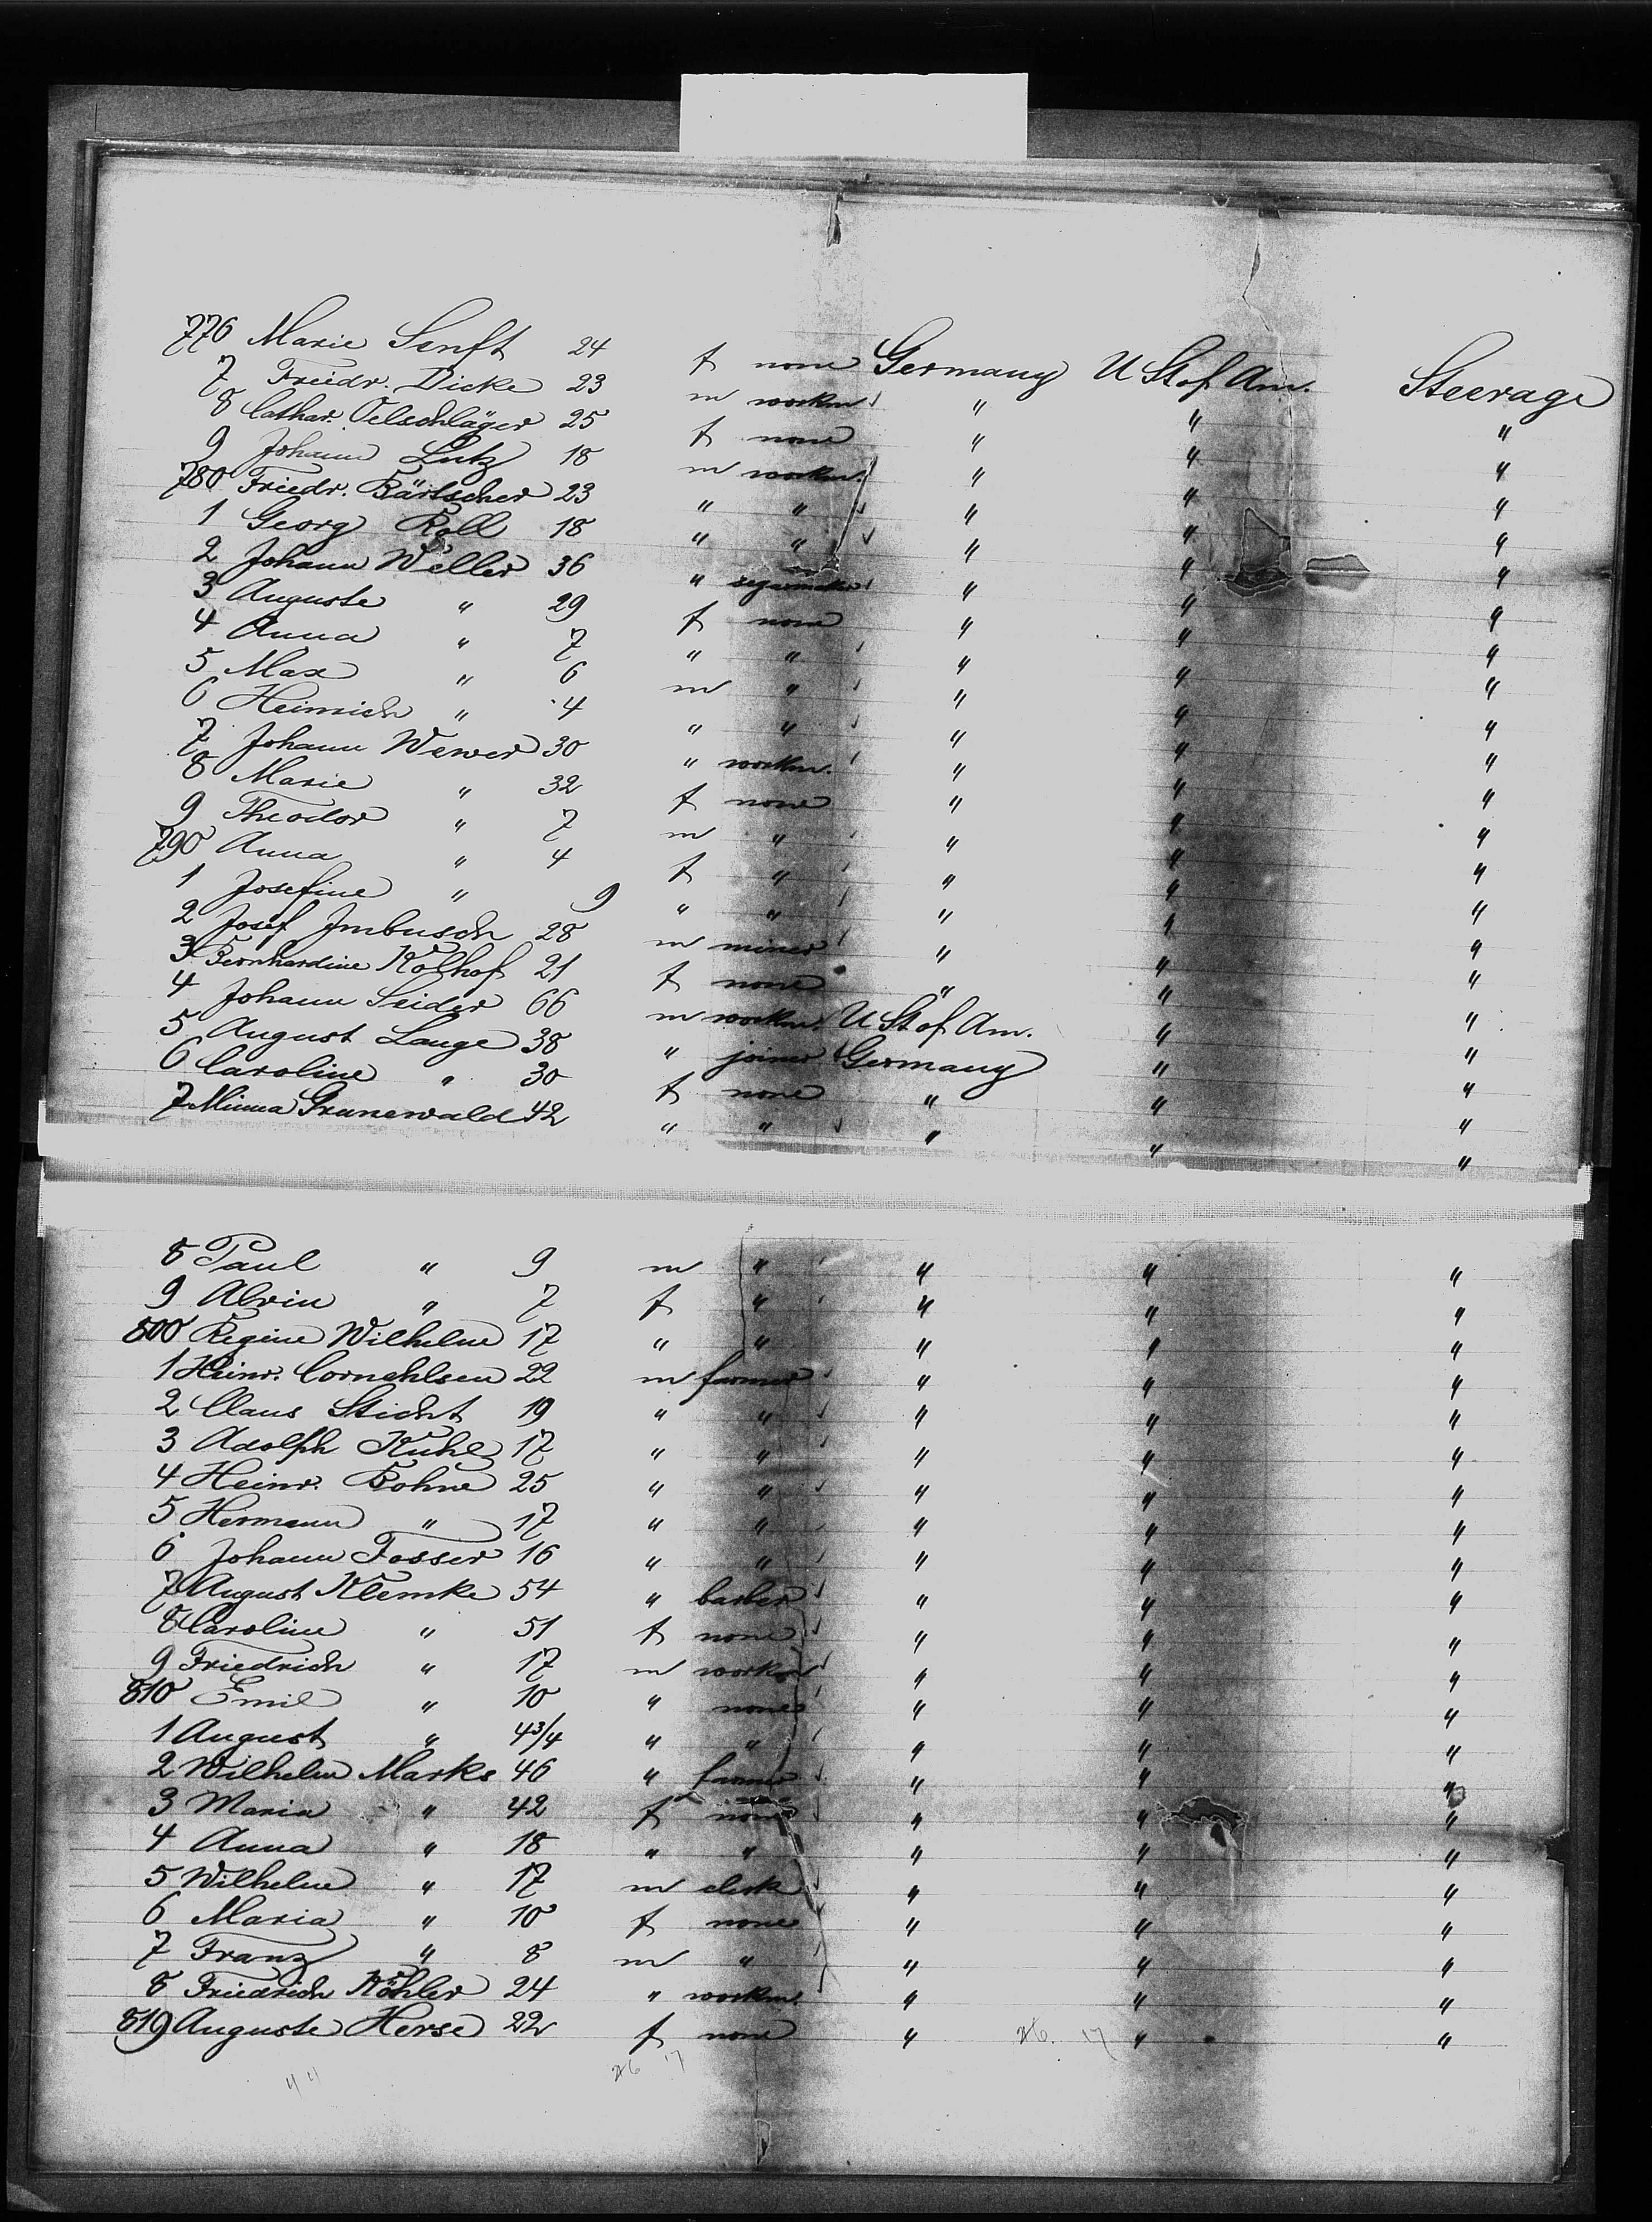 776 Marie Senft 24 f none Germany U St of Am. Steerage
7 Friedr. Dicke 23 m workm. " " "
8 Cathar. Oelschläger 25 f none " " "
9 Johann Lutz 18 m workm. " " "
780 Friedr. Bärtscher 23 " " " " "
1 Georg Roll 18 " " " " "
2 Johann Weller 36 " segarmaker " " "
3 Auguste " 29 f none " " "
4 Anna " 7 " " " " "
5 Max " 6 m " " " "
6 Heinrich " 4 " " " " "
7 Johann Wewer 30 " workm. " " "
8 Marie " 32 f none " " "
9 Theodor " 7 m " " " "
790 Anna " 4 f " " " "
1 Josefine " 9 " " " " "
2 Josef Imbusch 28 m miner " " "
3 Bernhardine Kolhof 21 f none " " "
4 Johann Seider 66 m workm. U St of Am. " "
5 August Lange 38 " joiner Germany " "
6 Caroline " 30 f none " " "
7 Minna Grunewald 42 " " " " "
8 Paul " 9 m " " " "
9 Alvin " 7 f " " " "
800 Regine Wilhelm 17 " " " " "
1 Heinr. Cornehlsen 22 m farmer " " "
2 Claus Sticht 19 " " " " "
3 Adolph Kuhl 17 " " " " "
4 Heinr. Bohne 25 " " " " "
5 Hermann " 17 " " " " "
6 Johann Fosser 16 " " " " "
7 August Klemke 54 " barber " " "
8 Caroline " 51 f none " " "
9 Friedrich " 17 m workm " " "
810 Emil " 10 " none " " "
1 August " 4 3/4 " " " " "
2 Wilhelm Marks 46 " farmer " " "
3 Maria " 42 f none " " "
4 Anna " 18 " " " " "
5 Wilhelm " 17 m clerk " " "
6 Maria " 10 f none " " "
7 Franz " 8 m " " " "
8 Friedrich Köhler 24 " workm. " " "
819 Auguste Herse 22 f none " 26. 17 " "
44 26 17